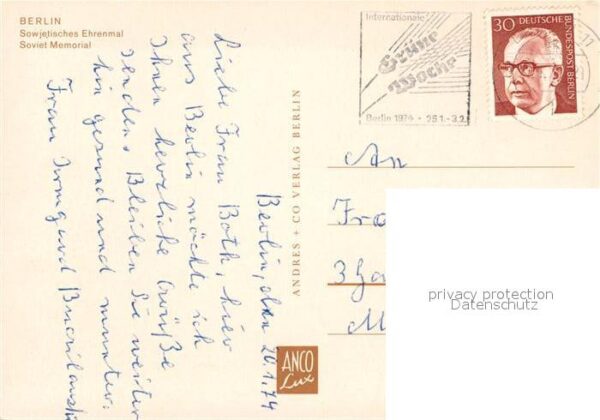 BERLIN
Sowjetisches Ehrenmal
Soviet Memorial
Internationale
Grüne
Woche
Berlin 1974 · 25.1.-3.2.
30 DEUTSCHE
BUNDESPOST BERLIN
Berlin, den 20.1.74
Liebe Frau Both, hier
aus Berlin möchte ich
Ihnen herzliche Grüße
senden. Bleiben Sie weiter-
hin gesund und munter.
Frau Irmgard
ANDRES + CO VERLAG BERLIN
ANCO
Lux
An
privacy protection
Datenschutz